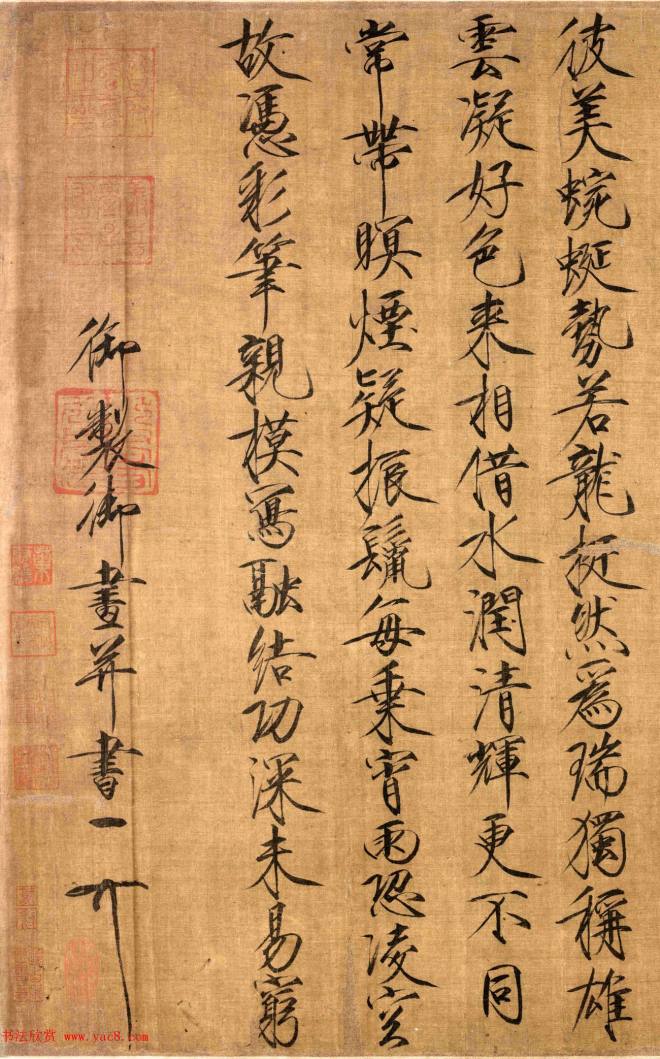 彼美蜿蜒勢若龍挺然爲瑞獨稱雄
雲凝好色來相借水潤清輝更不同
常帶暝煙疑振鬣每乘宵雨恐凌空
故憑彩筆親模寫融結功深未易窮
御製御畫并書
書法欣赏 www.yac8.com